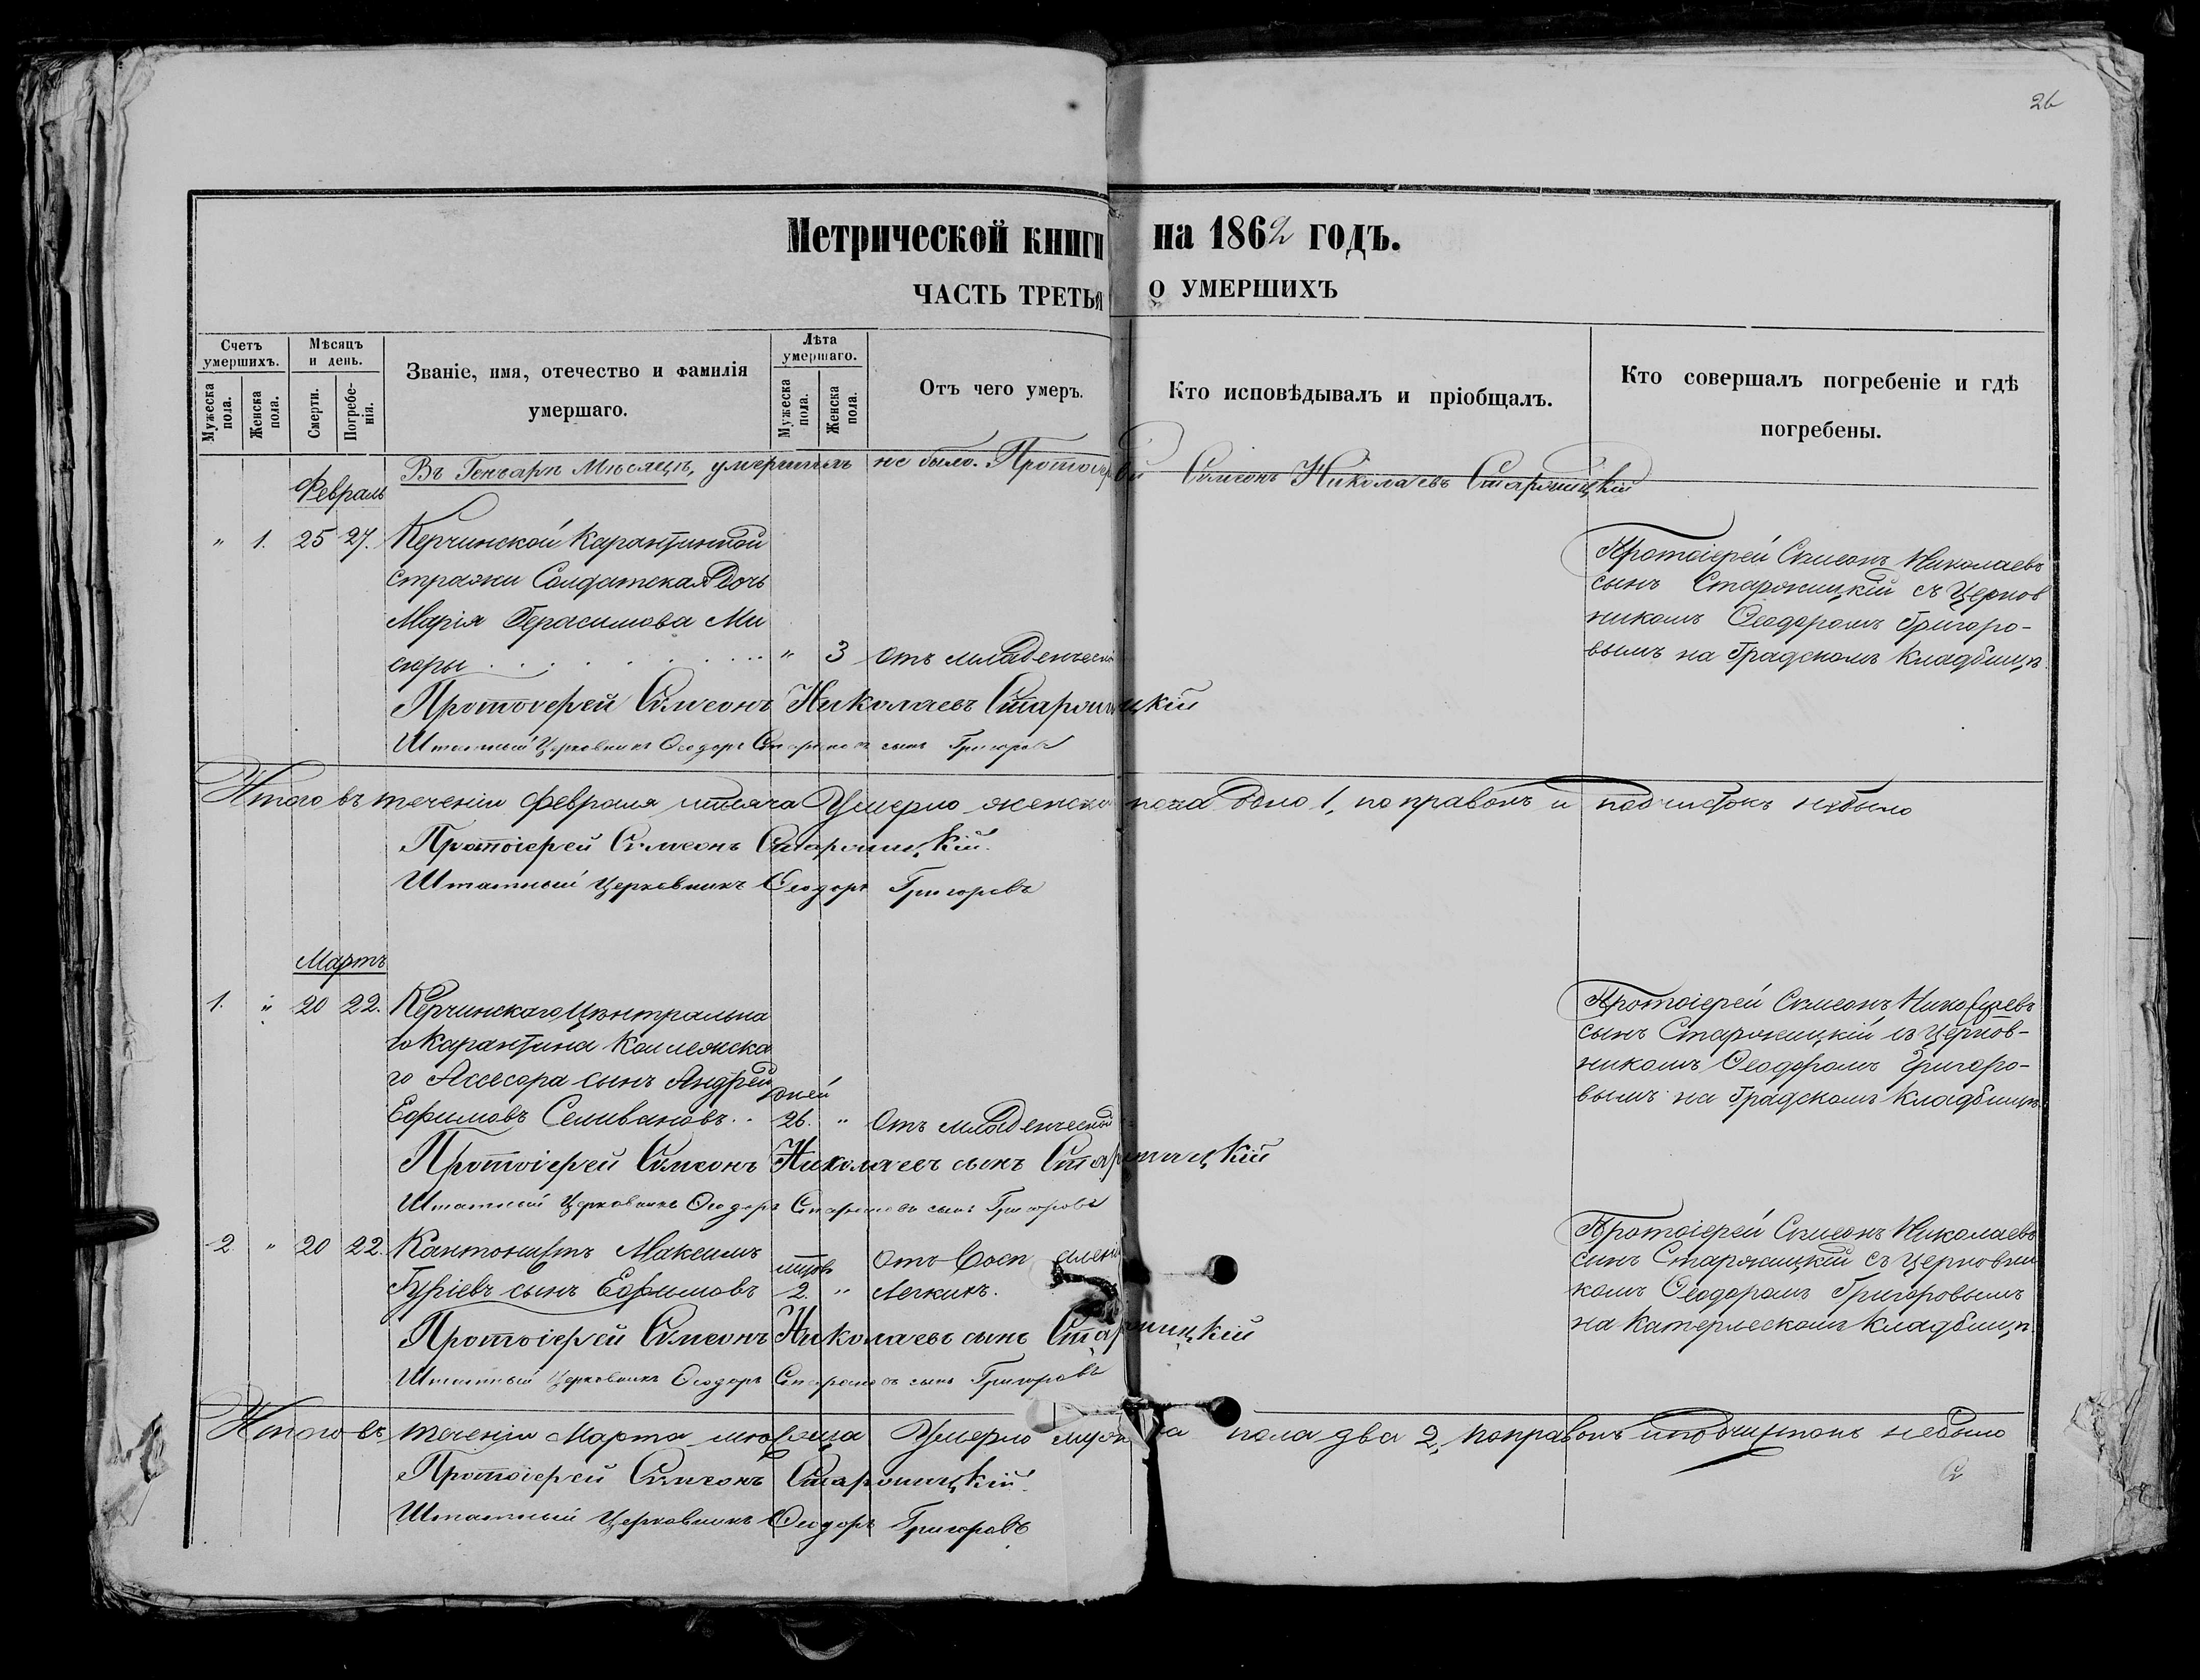 26
Метрической книги на 1862 годъ.
ЧАСТЬ ТРЕТЬЯ О УМЕРШИХЪ
Счетъ умершихъ.
Мужеска пола.
Женска пола.
Мѣсяцъ и день.
Смерти.
Погребенія.
Званіе, имя, отечество и фамилія
умершаго.
Лѣта умершаго.
Мужеска пола.
Женска пола.
Отъ чего умеръ.
Кто исповѣдывалъ и пріобщалъ.
Кто совершалъ погребеніе и гдѣ
погребены.
Въ Генварѣ Мѣсяцѣ, умершихъ не было. Протоіерей Симеонъ Николаевъ Старошицкій
Февраль
" 1. 25 27. Керчинской Карантинной
стражи Солдатская Дочь
Марія Герасимова Ми
сюры " 3 Отъ младенческой
Протоіерей Симеонъ Николаевъ
сынъ Старошицкій съ Церков
никомъ Ѳеодоромъ Григоро-
вымъ на Градскомъ Кладбищѣ.
Протоіерей Симеонъ Николаевъ Старошицкій
Штатный Церковникъ Ѳеодоръ сынъ Григоровъ
Итого въ теченіи февраля мѣсяца Умерло женска пола одно 1, поправокъ и подчистокъ небыло
Протоіерей Симеонъ Старошицкій.
Штатный Церковникъ Ѳеодоръ Григоровъ
Мартъ
1. " 20 22. Керчинскаго Центральна
го Карантина Коллежска
го Ассесора сынъ Андрей
Ефимовъ Селивановъ дней 26. " Отъ младенческой
Протоіерей Симеонъ Николаевъ
сынъ Старошицкій съ Церков-
никомъ Ѳеодоромъ Григоро-
вымъ на Градскомъ Кладбищѣ.
Протоіерей Симеонъ Николаевъ сынъ Старошицкій
Штатный Церковникъ Ѳеодоръ сынъ Григоровъ
2 " 20 22. Кантонистъ Максимъ
Гуріевъ сынъ Ефимовъ 2. " Легкихъ.
Протоіерей Симеонъ Николаевъ
сынъ Старошицкій съ Церковни
комъ Ѳеодоромъ Григоровымъ
на Кладбищѣ.
Протоіерей Симеонъ Николаевъ сынъ Старошицкій
Штатный Церковникъ Ѳеодоръ сынъ Григоровъ
Итого въ теченіи Марта мѣсяца Умерло мужска пола два 2, поправокъ и подчистокъ небыло
Протоіерей Симеонъ Старошицкій.
Штатный Церковникъ Ѳеодоръ Григоровъ